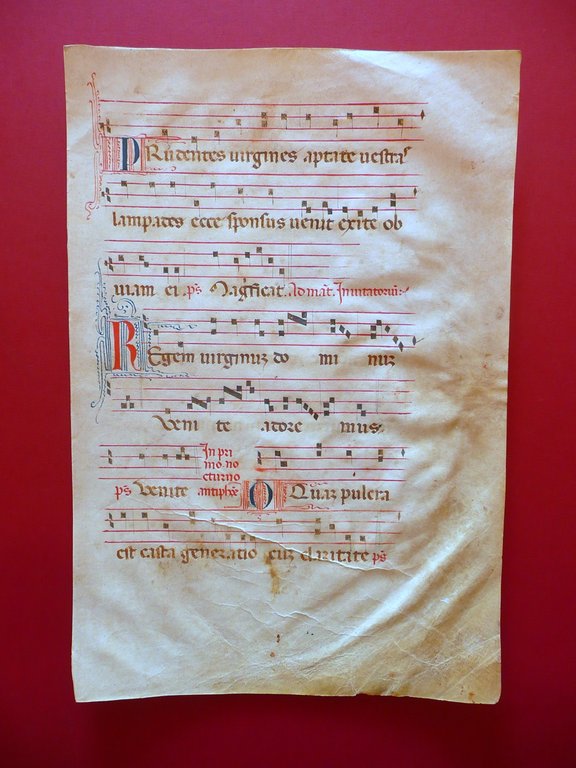 PRudentes uirgines aptate uestras
lampades ecce sponsus uenit exite ob
uiam ei. ps Magficat. Ad mat. Inuitatorium:
REgem uirginuz do mi nuz
Veni te adore mus.
In pri
mo. no
cturno
ps Venite antiphe O Quaz pulcra
est casta generatio cuz claritate ps